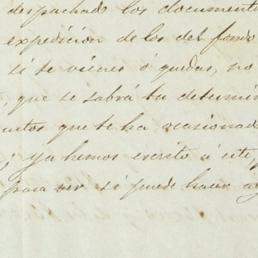 despachado los documento
expedición de los del fondo
si te vienes ó quedas, no
que se sabrá tu determin
que te ha ocasionado
ya hemos escrito á este
para ver si puede hacer